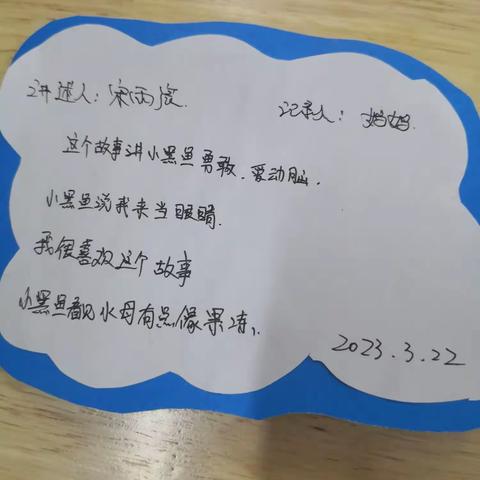 讲述人：宋雨宸 记录人：妈妈
这个故事讲小黑鱼勇敢、爱动脑.
小黑鱼说我来当眼睛.
我很喜欢这个故事
小黑鱼看见水母有点像果冻、
2023.3.22